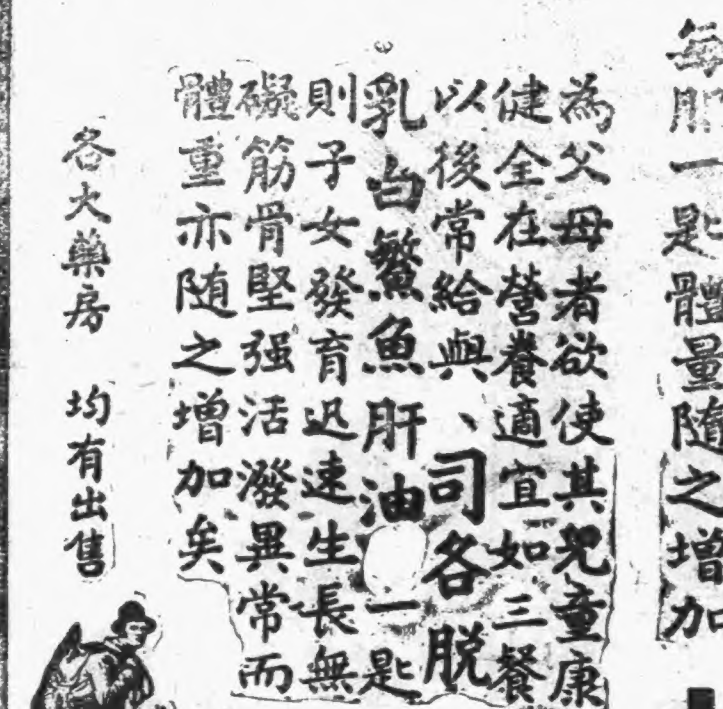 每服一匙體量隨之增加
為父母者欲使其兒童康
健全在營養適宜如三餐
以後常給與、司各脫
乳白鰵魚肝油一匙
則子女發育迅速生長無
礙筋骨堅强活潑異常而
體重亦随之增加矣
各大藥房 均有出售